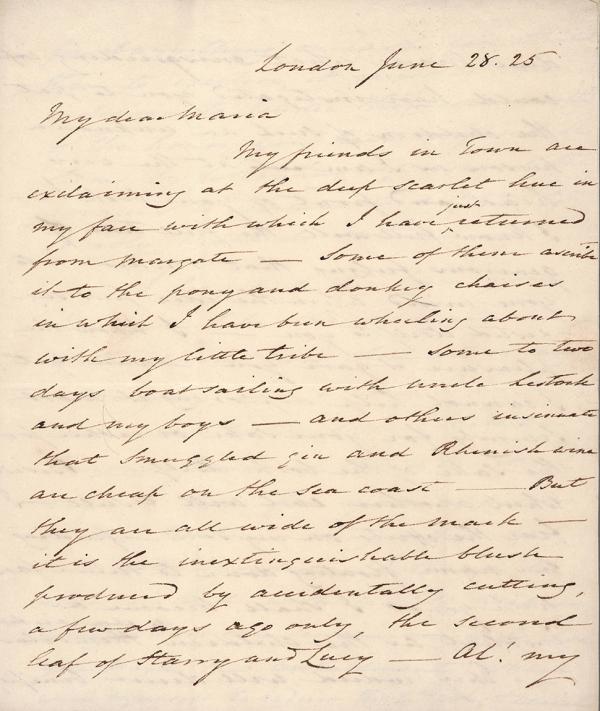 London June 28. 25
My dear Maria
My friends in Town are
exclaiming at the deep scarlet hue in
my face with which I have just returned
from Margate — Some of them ascribe
it to the pony and donkey chaises
in which I have been wheeling about
with my little tribe — some to two
days boatsailing with uncle Lestock
and my boys — and others insinuate
that smuggled gin and Rhenish wine
are cheap on the sea coast — But
they are all wide of the mark —
it is the inextinguishable blush
produced by accidentally cutting,
a few days ago only, the second
leaf of Harry and Lucy — Ah! my